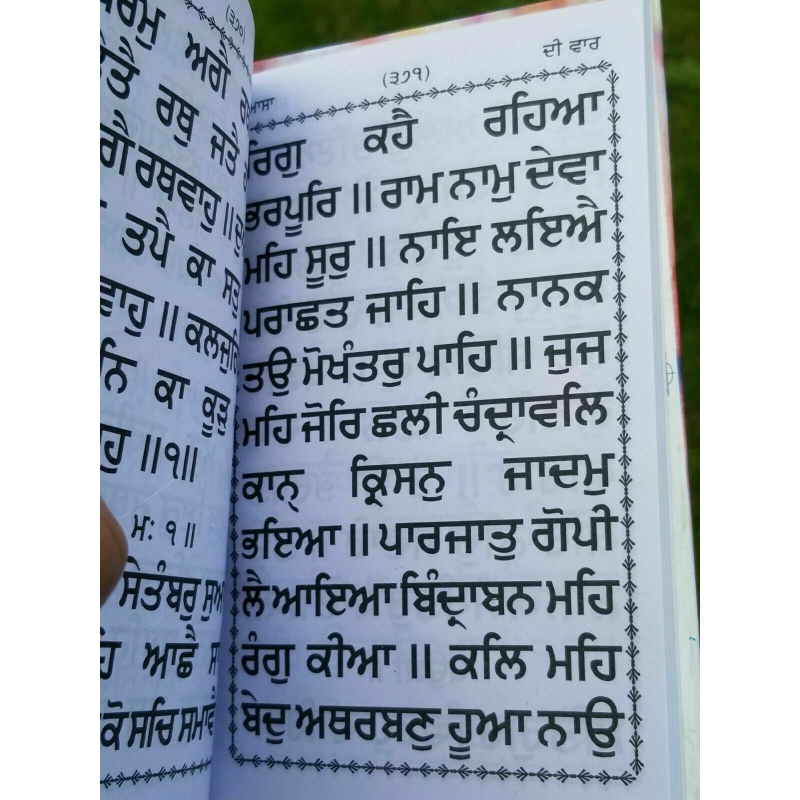 (੩੭੦)
ਅਗੈ
ਰਥੁ ਜਤੈ
ਰਥਵਾਹੁ ॥
ਤਪੈ ਕਾ ਸਤੁ
॥ ਕਲਜੁਗਿ
ਕਾ ਕੂੜੁ
॥੧॥
ਮਃ ੧ ॥
ਸੇਤੰਬਰੁ
ਆਛੈ
ਕੋ ਸਚਿ ਸਮਾਵੈ
ਆਸਾ (੩੭੧) ਦੀ ਵਾਰ
ਰਿਗੁ ਕਹੈ ਰਹਿਆ
ਭਰਪੂਰਿ ॥ ਰਾਮ ਨਾਮੁ ਦੇਵਾ
ਮਹਿ ਸੂਰੁ ॥ ਨਾਇ ਲਇਐ
ਪਰਾਛਤ ਜਾਹਿ ॥ ਨਾਨਕ
ਤਉ ਮੋਖੰਤਰੁ ਪਾਹਿ ॥ ਜੁਜ
ਮਹਿ ਜੋਰਿ ਛਲੀ ਚੰਦ੍ਰਾਵਲਿ
ਕਾਨ੍ ਕ੍ਰਿਸਨੁ ਜਾਦਮੁ
ਭਇਆ ॥ ਪਾਰਜਾਤੁ ਗੋਪੀ
ਲੈ ਆਇਆ ਬਿੰਦ੍ਰਾਬਨ ਮਹਿ
ਰੰਗੁ ਕੀਆ ॥ ਕਲਿ ਮਹਿ
ਬੇਦੁ ਅਥਰਬਣੁ ਹੂਆ ਨਾਉ